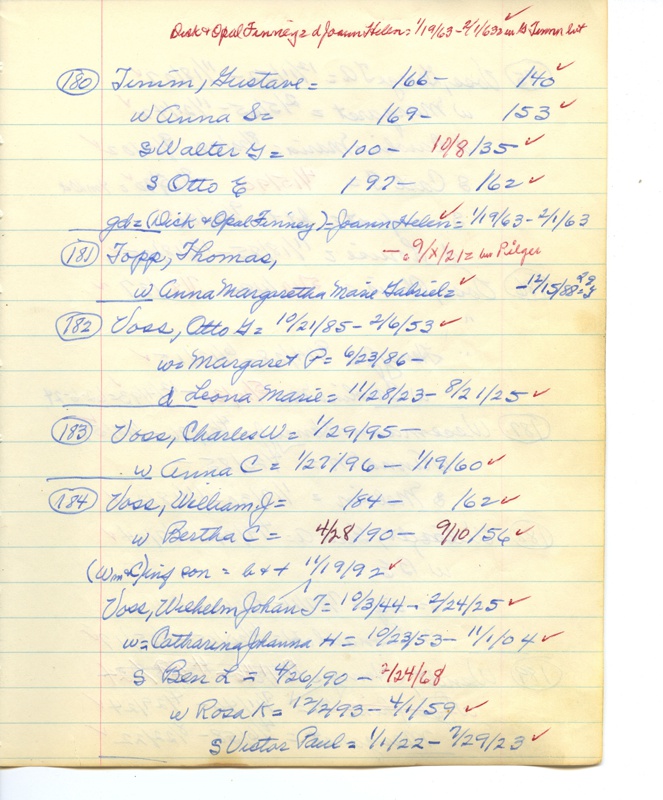 Dick & Opal Finney = d Joann Helen = 1/19/63 - 2/1/63 = in G Timm lot
180 Timm, Gustave = 166 - 140 ✓
w Anna S = 169 - 153 ✓
S Walter G = 100 - 10/8/35 ✓
S Otto E 197 - 162 ✓
gd = (Dick & Opal Finney) = Joann Helen = 1/19/63 - 2/1/63
181 Topp, Thomas, - 9/X/21 = in Pilger
w Anna Margaretha Marie Gabriel = ✓ - 12/15/88
182 Voss, Otto G = 10/21/85 - 2/6/53 ✓
w = Margaret P = 6/23/86 -
d Leona Marie = 11/28/23 - 8/21/25 ✓
183 Voss, Charles W = 1/29/95 -
w Anna C = 1/27/96 - 1/19/60 ✓
184 Voss, William J = 184 - 162 ✓
w Bertha C = 4/28/90 - 9/10/56 ✓
(Wm & C) inf son = b & + 11/19/92 ✓
Voss, Wilhelm Johan J = 10/3/44 - 2/24/25 ✓
w = Catharina Johanna H = 10/23/53 - 11/1/04 ✓
S Ben L = 4/26/90 - 2/24/68
w Rosa K = 12/2/93 - 4/1/59 ✓
S Victor Paul = 1/1/22 - 7/29/23 ✓